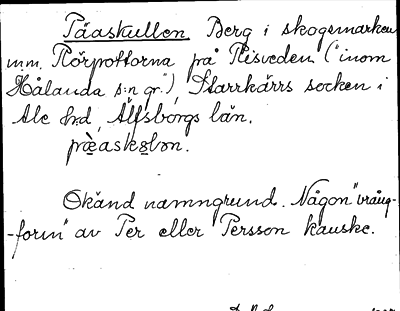 Päaskullen Berg i skogsmarken
m.m. Rörpottorna på Risveden ("inom
Hålanda s:n gr."), Starrkärrs socken i
Ale hrd, Älfsborgs län.
pr̀æaskɷlən.
Okänd namngrund. Någon "vräng-
-form" av Per eller Persson kanske.